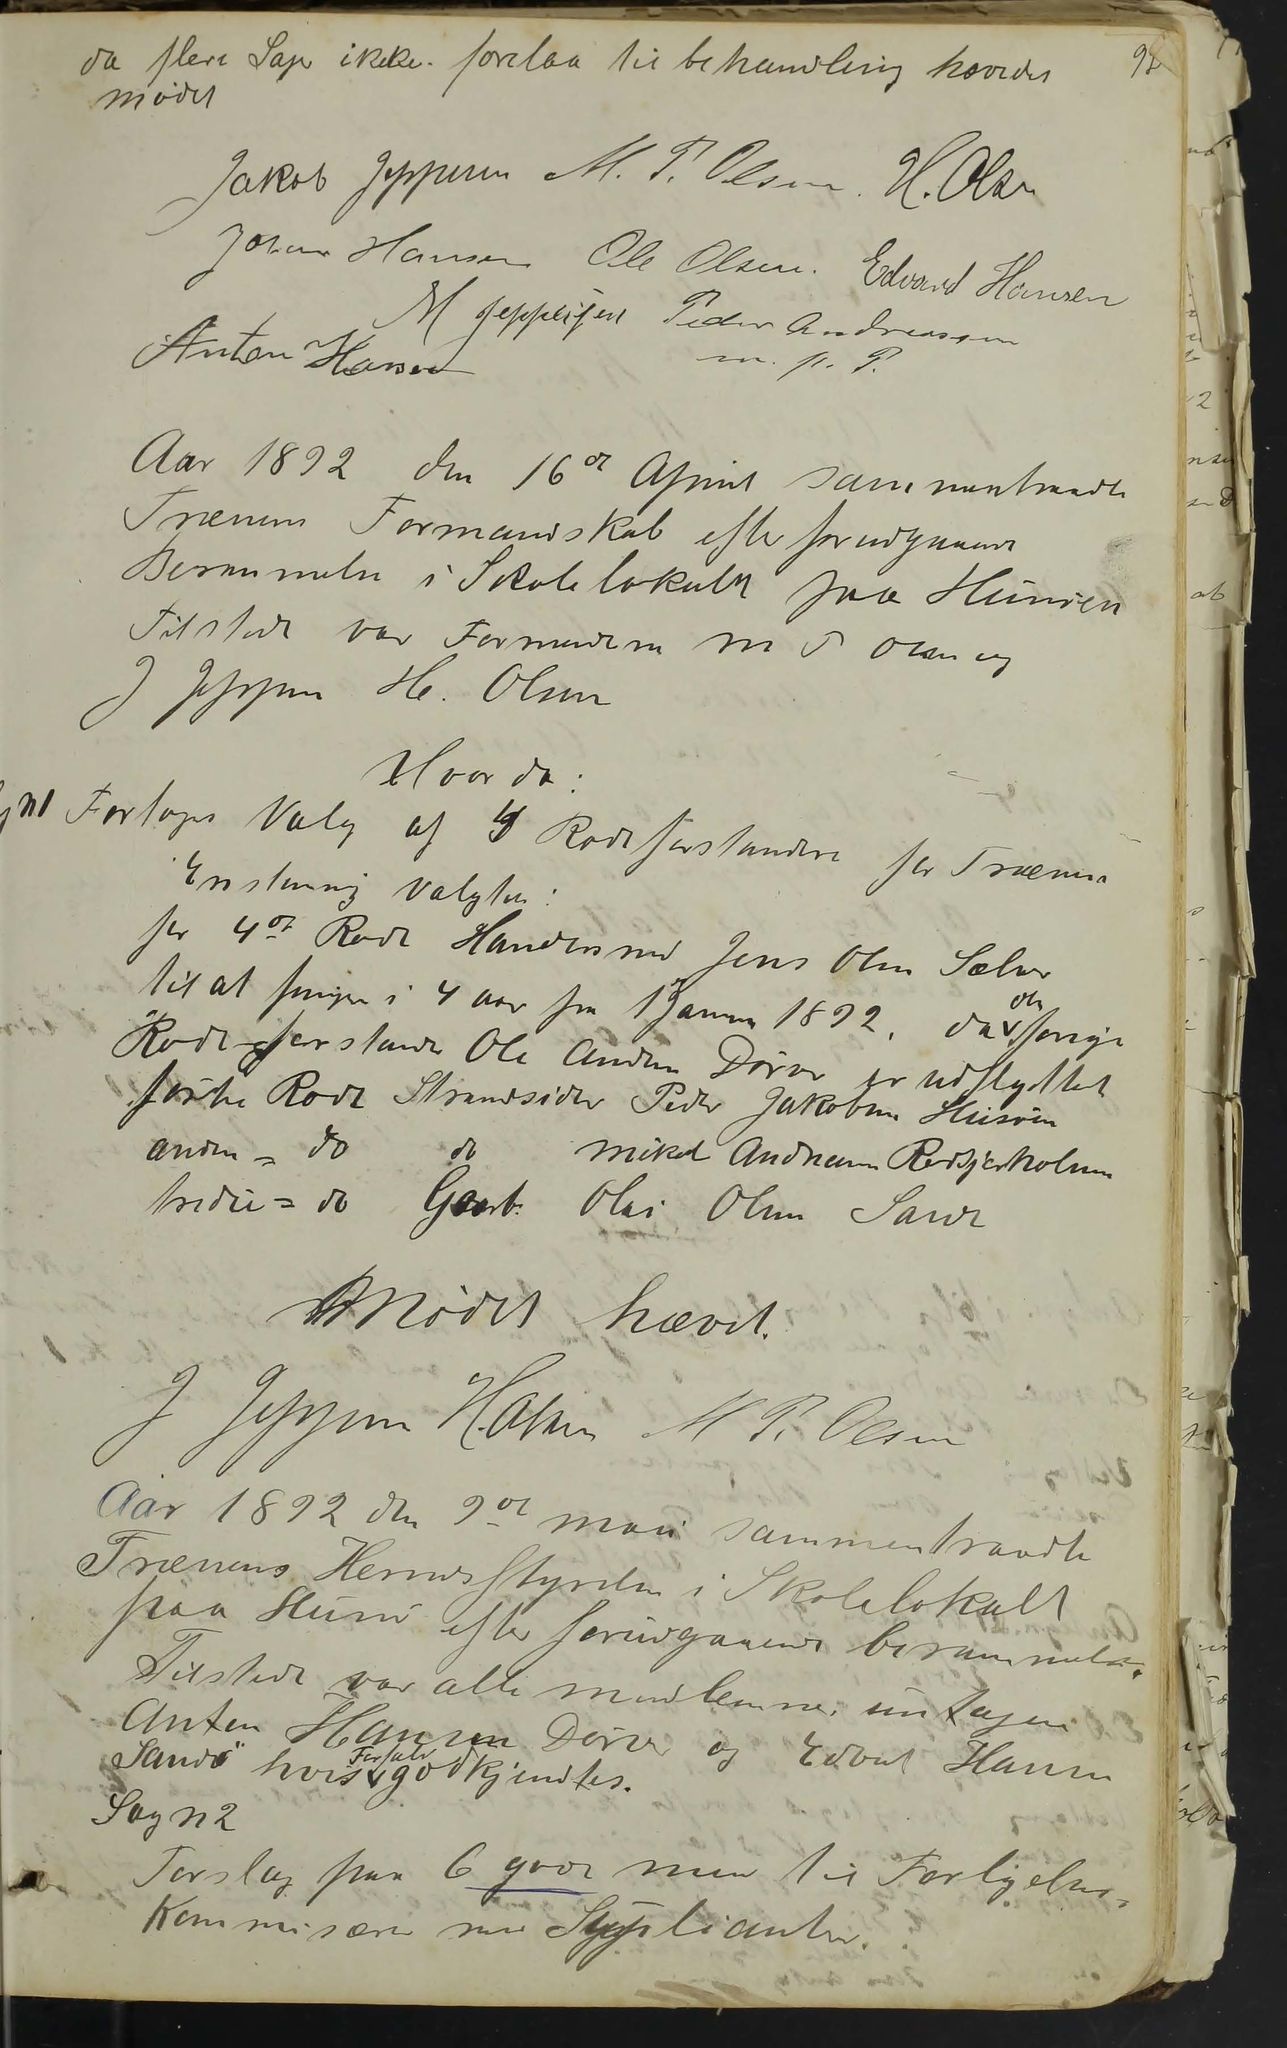 da flere Sager ikke forelaa til behandling hævedes
mødet
Jakob Jeppesen M. P. Olsen. H. Olsen
Johan Hansen Ole Olsen. Edvard Hansen
M Jeppesen Peder Andreassen
Anton Hansen m. p. P.
Aar 1892 den 16de April sammentraadte
Trænens Formandskab efter forudgaaende
Berammelse i Skolelokalet paa Husøen
Tilstede var Formændene M P Olsen og
J Jeppesen H. Olsen
Hvorda:
Sag N1 Fortoges Valg af 4 Rodeforstandere for Trænen
Enstemmig valgtes:
for 4de Rode Handelsmd Jens Olsen Selvær
til at fungere i 4 aar fra 1 Januar 1892. da den forrige
Rodeforstander Ole Andersen Dørvær er udflyttet
første Rode Strandsider Peder Jakobsen Husøen
anden = do do Mikal Andreasen Rødskjærholmen
tredie = do Gaarb. Olai Olsen Sande
Mødet hævet.
J Jeppesen H. Olsen M P. Olsen
Aar 1892 den 9de mai sammentraadte
Trænens Herredsstyrelse i Skolelokalet
paa Husø efter forudgaaende berammelse.
Tilstede var alle medlemmer untagen
Anton Hansen Dørvær og Edvart Hansen
Sandø hvis Forfald godkjendtes.
Sag N2
Forslag paa 6 gode men til Forligelses-
Kommisærer med Suplianter.